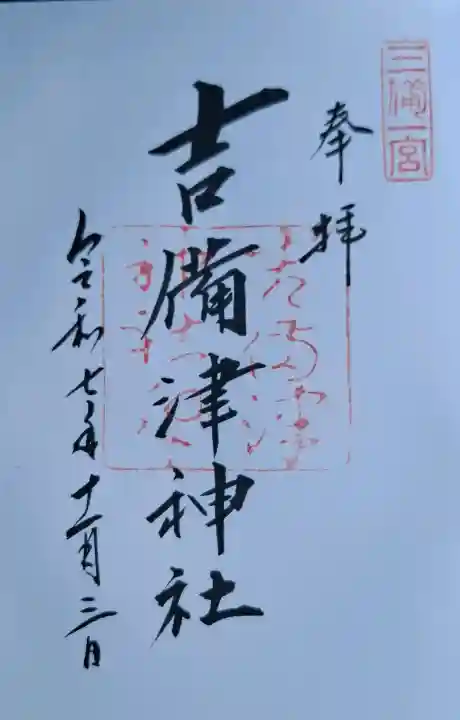 三備一宮
奉拝
吉備津神社
令和七年十一月三日